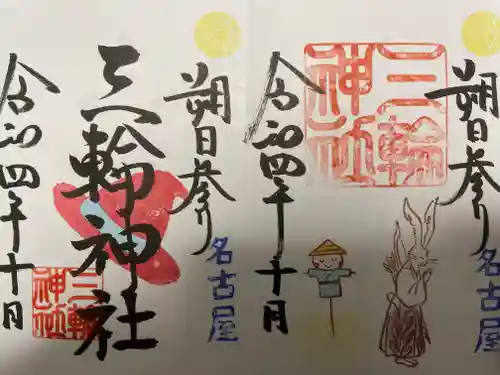 朔日参り
名古屋
三輪神社
三輪
神社
令和四年十月
朔日参り
名古屋
三輪
神社
令和四年十月